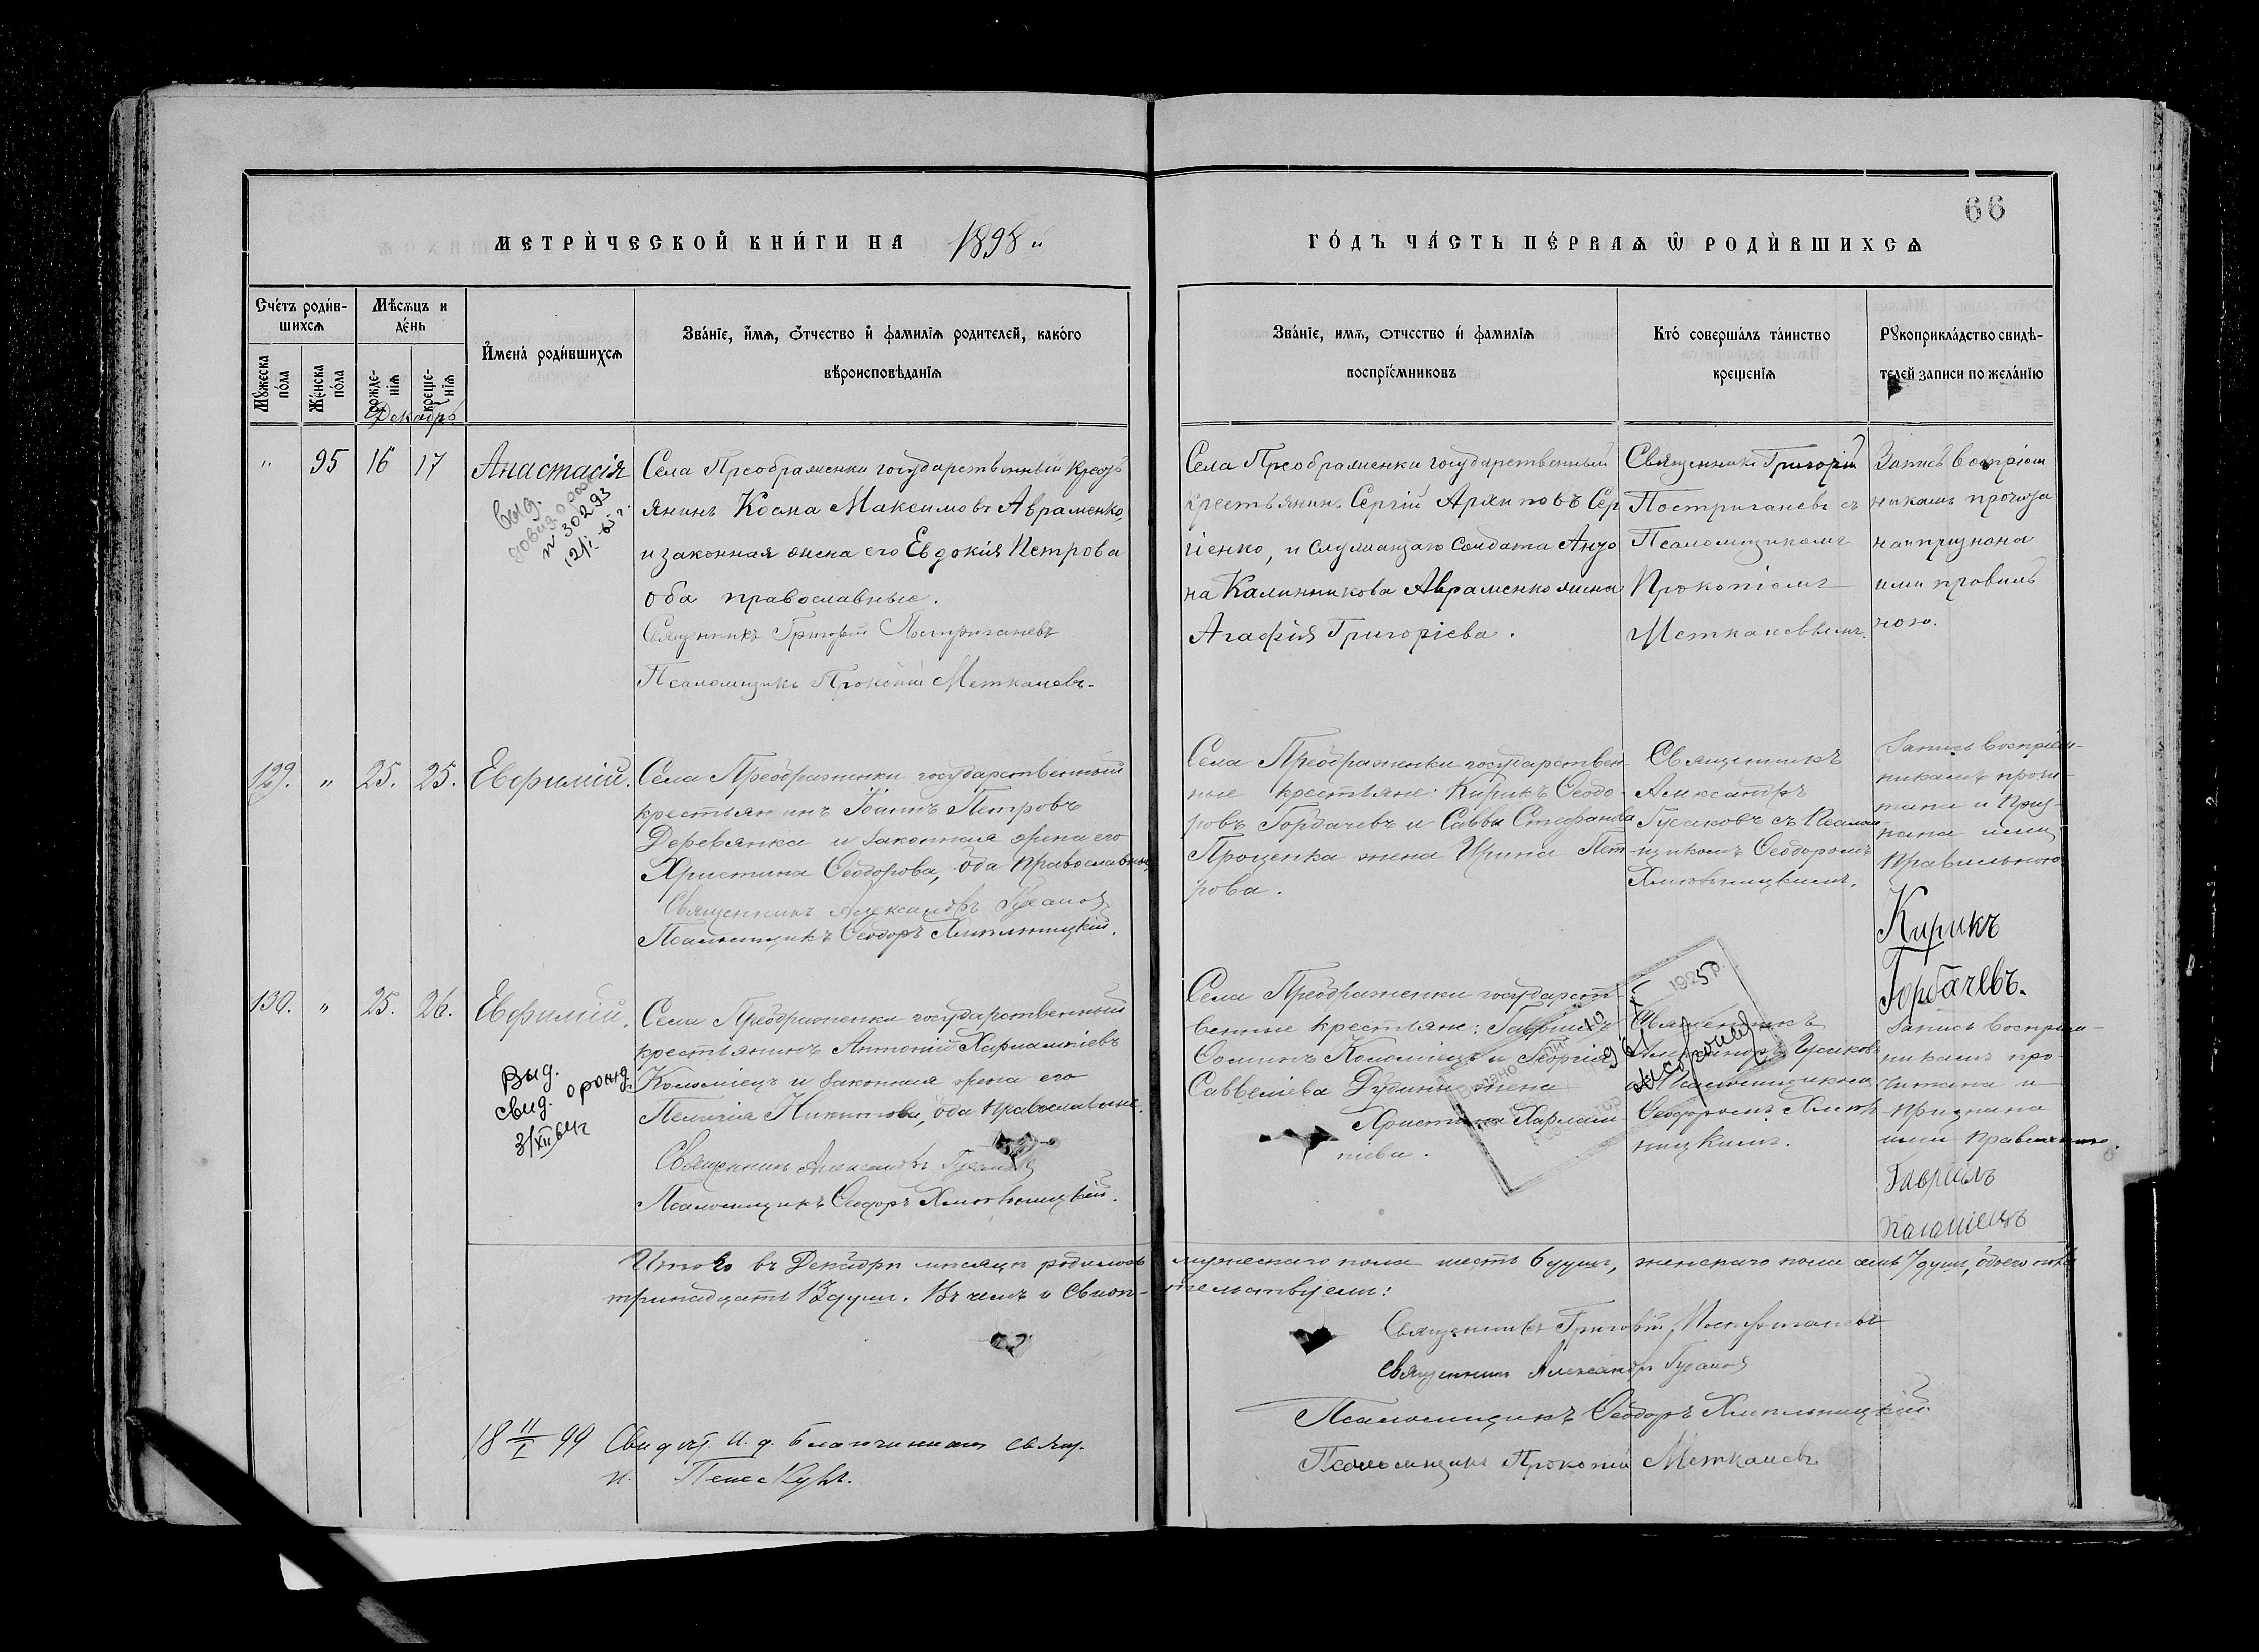 66
МЕТРИ́ЧЕСКОЙ КНИ́ГИ НА 1898 й
ГО́ДЪ ЧА́СТЬ ПЕ́РВАѦ Ѿ РОДИ́ВШИХСѦ
Сче́тъ роди́в-
шихсѧ
Мꙋ́жеска по́ла
Же́нска по́ла
Мѣ́сѧцъ и
де́нь
рожде-
нїѧ
креще-
нїѧ
Декабрь
И҆мена̀ роди́вшихсѧ
Зва́нїе, и҆́мѧ, ѻ҆́тчество и҆ фамилїѧ родителей, како́го
вѣроисповѣ́данїѧ
Зва́нїе, имѧ, ѻтчество и҆ фамилїѧ
воспрїе́мниковъ
Кто́ соверша́лъ та́инство
креще́нїѧ
Рꙋкоприкла́дство свидѣ́-
телей записи по жела́нїю
" 95 16 17 Анастасія
Выд.
о рожд
№ 30293
12/I-65 г.
Села Преображенки государственный крест
янинъ Косма Максимовъ Авраменко,
и законная жена его Евдокія Петрова
оба православные.
Священникъ Григорій Постригачевъ
Псаломщикъ Прокопій Меткачевъ.
Села Преображенки государственный
крестьянинъ Сергій Архиповъ Сер
гіенко, и служащаго солдата Анто
на Калинникова Авраменко жена
Агафія Григоріева.
Священникъ Григорій
Постригачевъ съ
Псаломщикомъ
Прокопіемъ
Меткачевымъ.
Запись воспріем
никамъ прочита
на и признана
ими правиль
ною.
129. " 25. 25. Евфимій.
Села Преображенки государственный
крестьянинъ Іоаннъ Петровъ
Деревянка и законная жена его
Христина Ѳеодорова, оба православные,
Священникъ Александръ Гусаковъ
Псаломщикъ Ѳеодоръ Хмельницкій.
Села Преображенки государствен-
ные крестьяне: Кирикъ Ѳеодо-
ровъ Горбачевъ и Саввы Стефанова
Проценка жена Ирина Пет-
рова.
Священникъ
Александръ
Гусаковъ съ Псалом-
щикомъ Ѳеодоромъ
Хмельницкимъ.
Запись воспріем-
никамъ прочи-
тана и приз-
нана ими
правильною
Кирикъ
Горбачевъ.
130. " 25. 26. Евфимій.
Выд.
свид. о рожд.
3/XII 64 г
Села Преображенки государственный
крестьянинъ Антоній Харлампіевъ
Коломіецъ и законная жена его
Пелагія Никитова, оба православные.
Священникъ Александръ Гусаковъ
Псаломщикъ Ѳеодоръ Хмельницкій.
Села Преображенки государст-
венные крестьяне: Гавріилъ
Ѳоминъ Коломіецъ и Георгія
Саввеліева Дудника жена
Христина Харлам-
піева.
Священникъ
Александръ Гусаковъ
съ Псаломщикомъ
Ѳеодоромъ Хмель-
ницкимъ.
Запись воспріем-
никамъ про-
читана и
признана
ими правильною.
Гавріилъ
Каламіецъ
1925 р.
Итого въ Декабрѣ мѣсяцѣ родилось мужескаго пола шесть 6 душъ, женскаго пола семь 7 душъ, обоего пола
тринадцать 13 душъ. Въ чемъ и свидѣ-тельствуемъ:
Священникъ Григорій Постригачевъ
Священникъ Александръ Гусаковъ
Псаломщикъ Ѳеодоръ Хмельницкій.
Псаломщикъ Прокопій Меткачевъ
18 11/I 99 Свидѣт. И. д. Благочиннаго свящ.